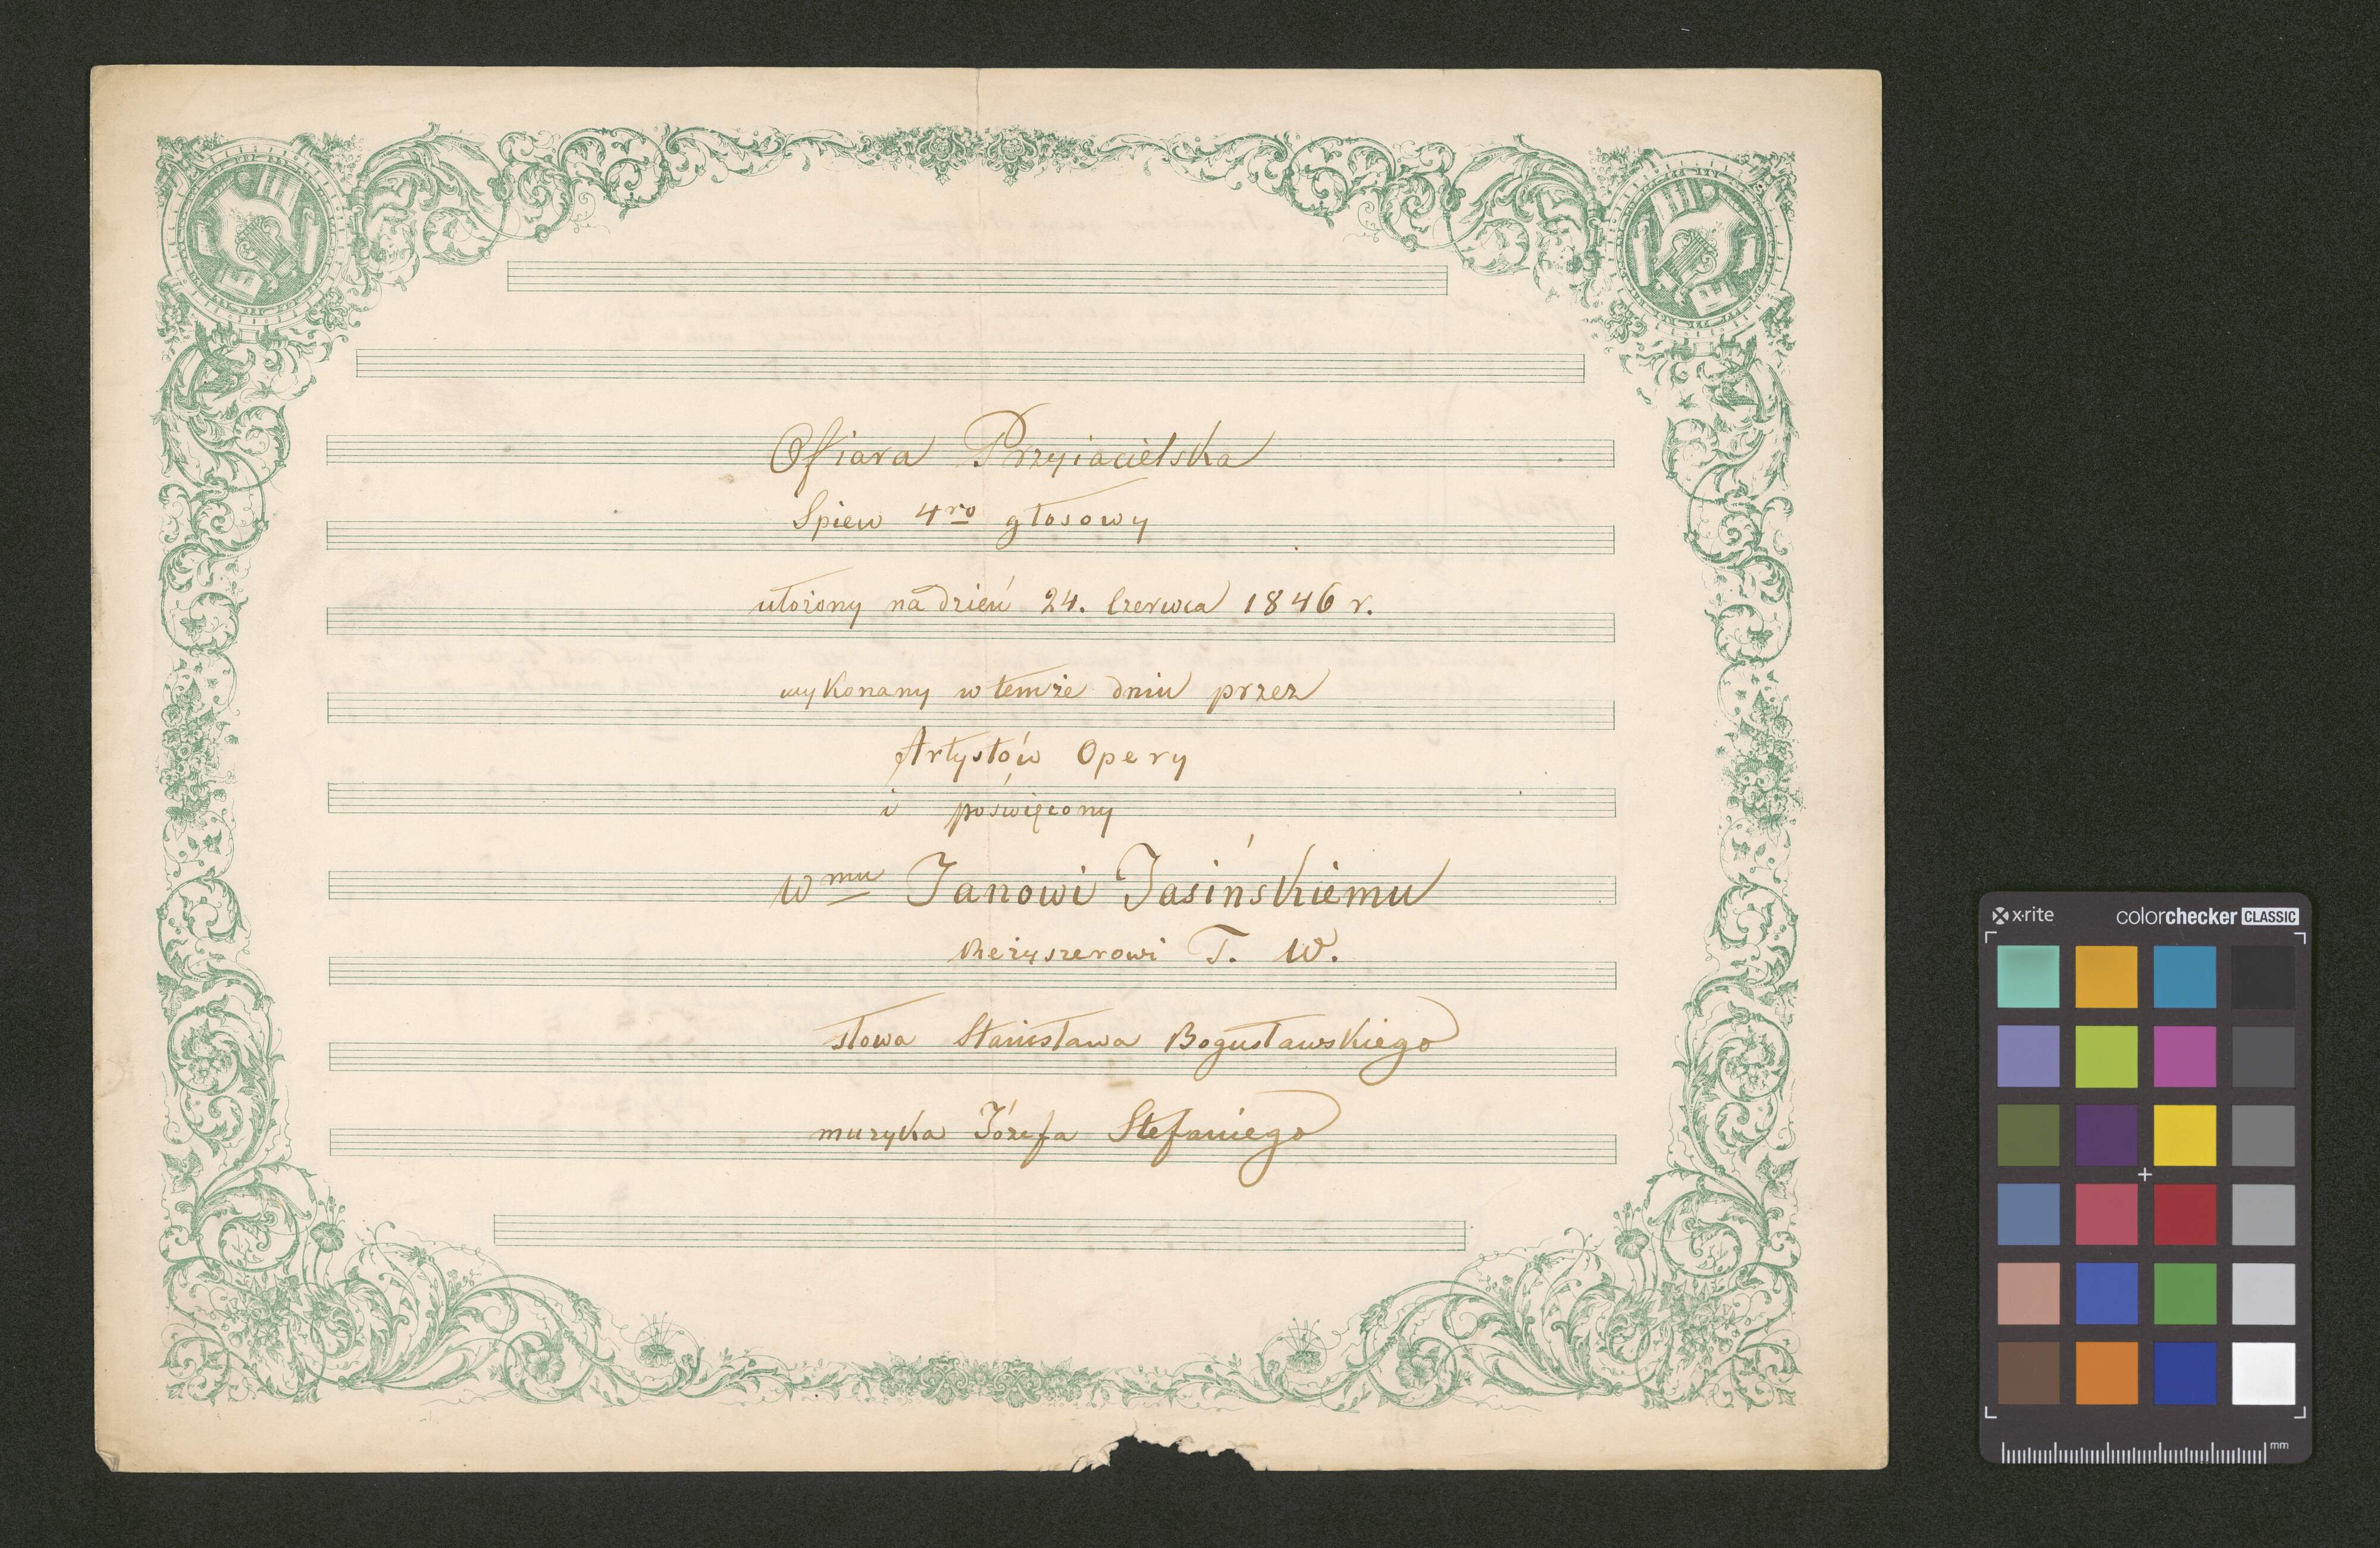 Ofiara Przyiacielska
Spiew 4ro głosowy
ułożony na dzień 24. Czerwca 1846 r.
wykonany w temże dniu przez
Artystów Opery
i poświęcony
Wmu Janowi Jasińskiemu
Reżyszerowi T. W.
słowa Stanisława Bogusławskiego
muzyka Józefa Stefaniego
x·rite colorchecker CLASSIC
mm